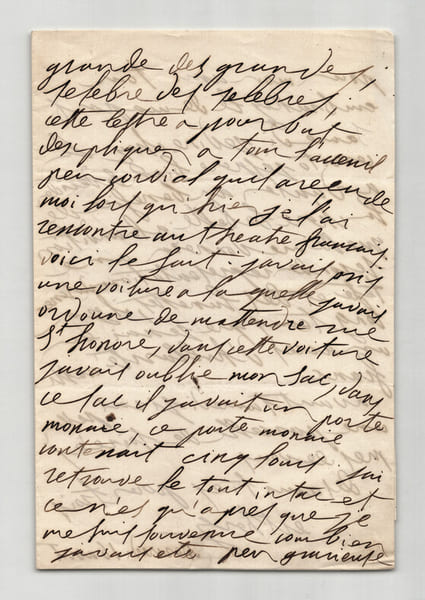 grande des grandes,
selebre des selebres,
cette lettre a pour but
dexpliquer a ton faceuil
peu cordial quil a reçu de
moi lors qu'hier je l'ai
rencontre au theatre français.
voici le fait javais pris
une voiture a laquelle javais
ordonne de mattendre rue
St honoré, dans cette voiture
javais oublie mon sac, dans
ce sac il javait un porte
monaie, ce porte monaie
contenait cinq louis jai
retrouve le tout intact et
ce n'es qu'apres que je
me suis souvenue combien
javais ete peu gracieuse